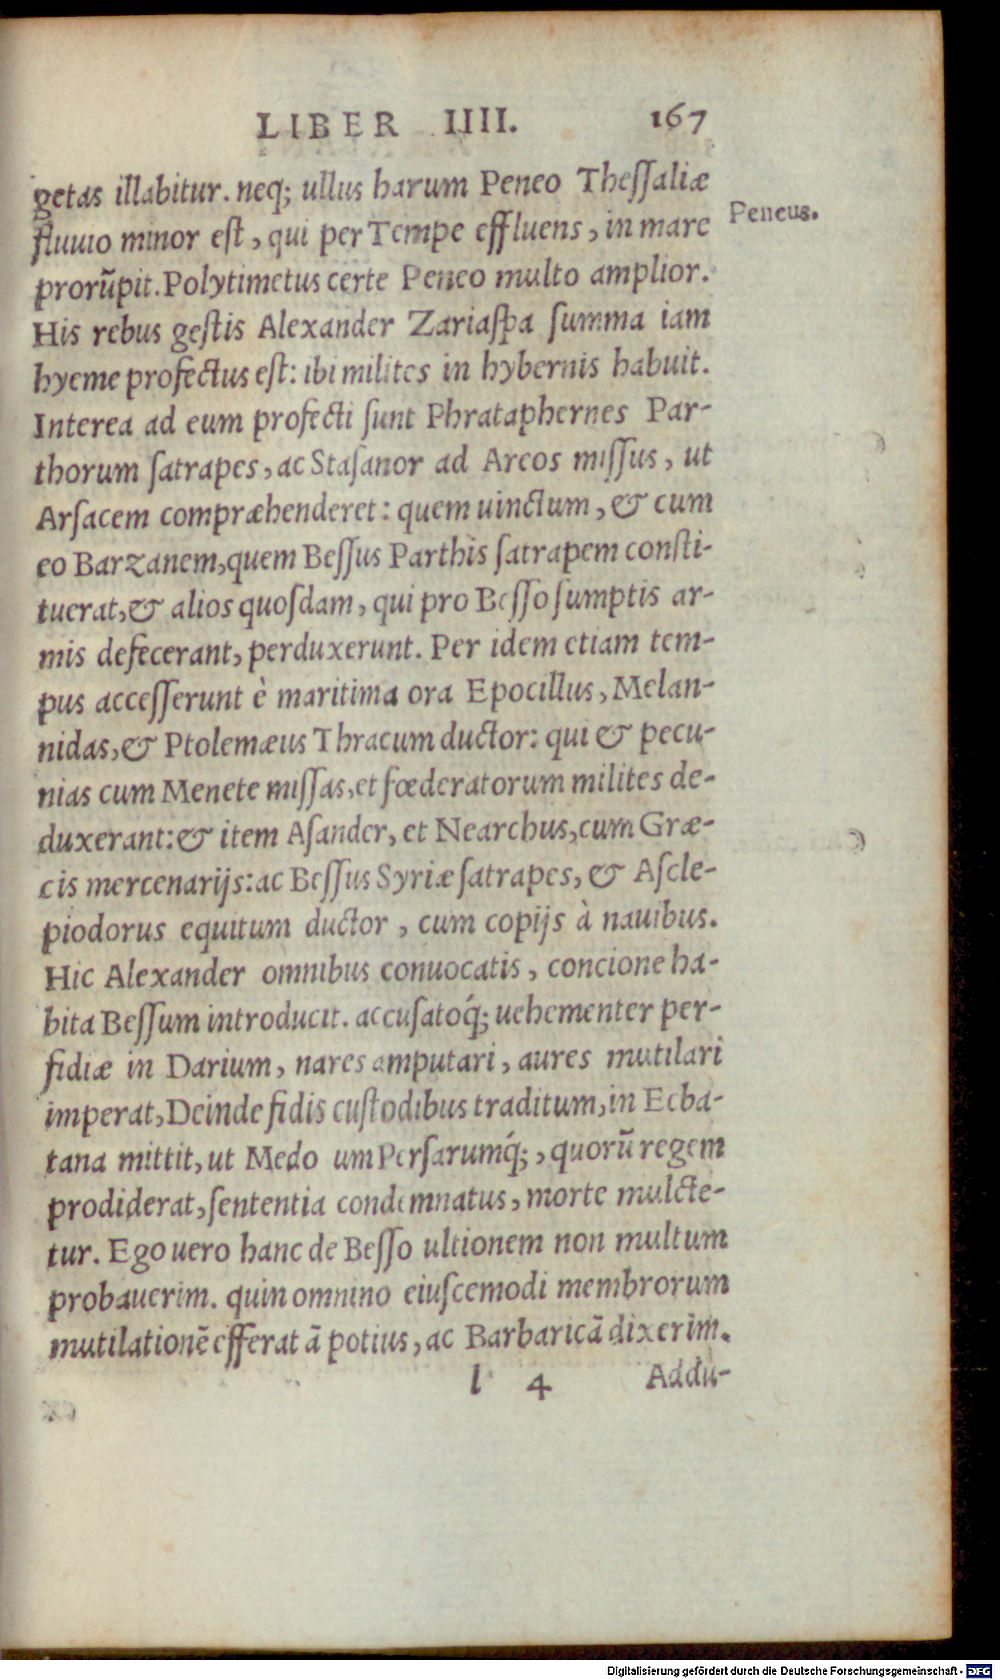 LIBER IIII. 167
getas illabitur. neq; ullus harum Peneo Thessaliæ
Peneus.
fluuio minor est, qui per Tempe effluens, in mare
prorūpit. Polytimetus certe Peneo multo amplior.
His rebus gestis Alexander Zariaspa summa iam
hyeme profectus est: ibi milites in hybernis habuit.
Interea ad eum profecti sunt Phrataphernes Par-
thorum satrapes, ac Stasanor ad Areos missus, ut
Arsacem compræhenderet: quem uinctum, & cum
eo Barzanem, quem Bessus Parthis satrapem consti-
tuerat, & alios quosdam, qui pro Besso sumptis ar-
mis defecerant, perduxerunt. Per idem etiam tem-
pus accesserunt è maritima ora Epocillus, Melan-
nidas, & Ptolemæus Thracum ductor: qui & pecu-
nias cum Menete missas, et fœderatorum milites de-
duxerant: & item Asander, et Nearchus, cum Græ-
cis mercenarijs: ac Bessus Syriæ satrapes, & Ascle-
piodorus equitum ductor, cum copijs à nauibus.
Hic Alexander omnibus conuocatis, concione ha-
bita Bessum introducit. accusatoq́; uehementer per-
fidiæ in Darium, nares amputari, aures mutilari
imperat, Deinde fidis custodibus traditum, in Ecba-
tana mittit, ut Medo um Persarumq́;, quorū regem
prodiderat, sententia condemnatus, morte mulcte-
tur. Ego uero hanc de Besso ultionem non multum
probauerim. quin omnino eiuscemodi membrorum
mutilationē efferat ā potius, ac Barbaricā dixerim.
l 4 Addu-
Digitalisierung gefördert durch die Deutsche Forschungsgemeinschaft - DFG